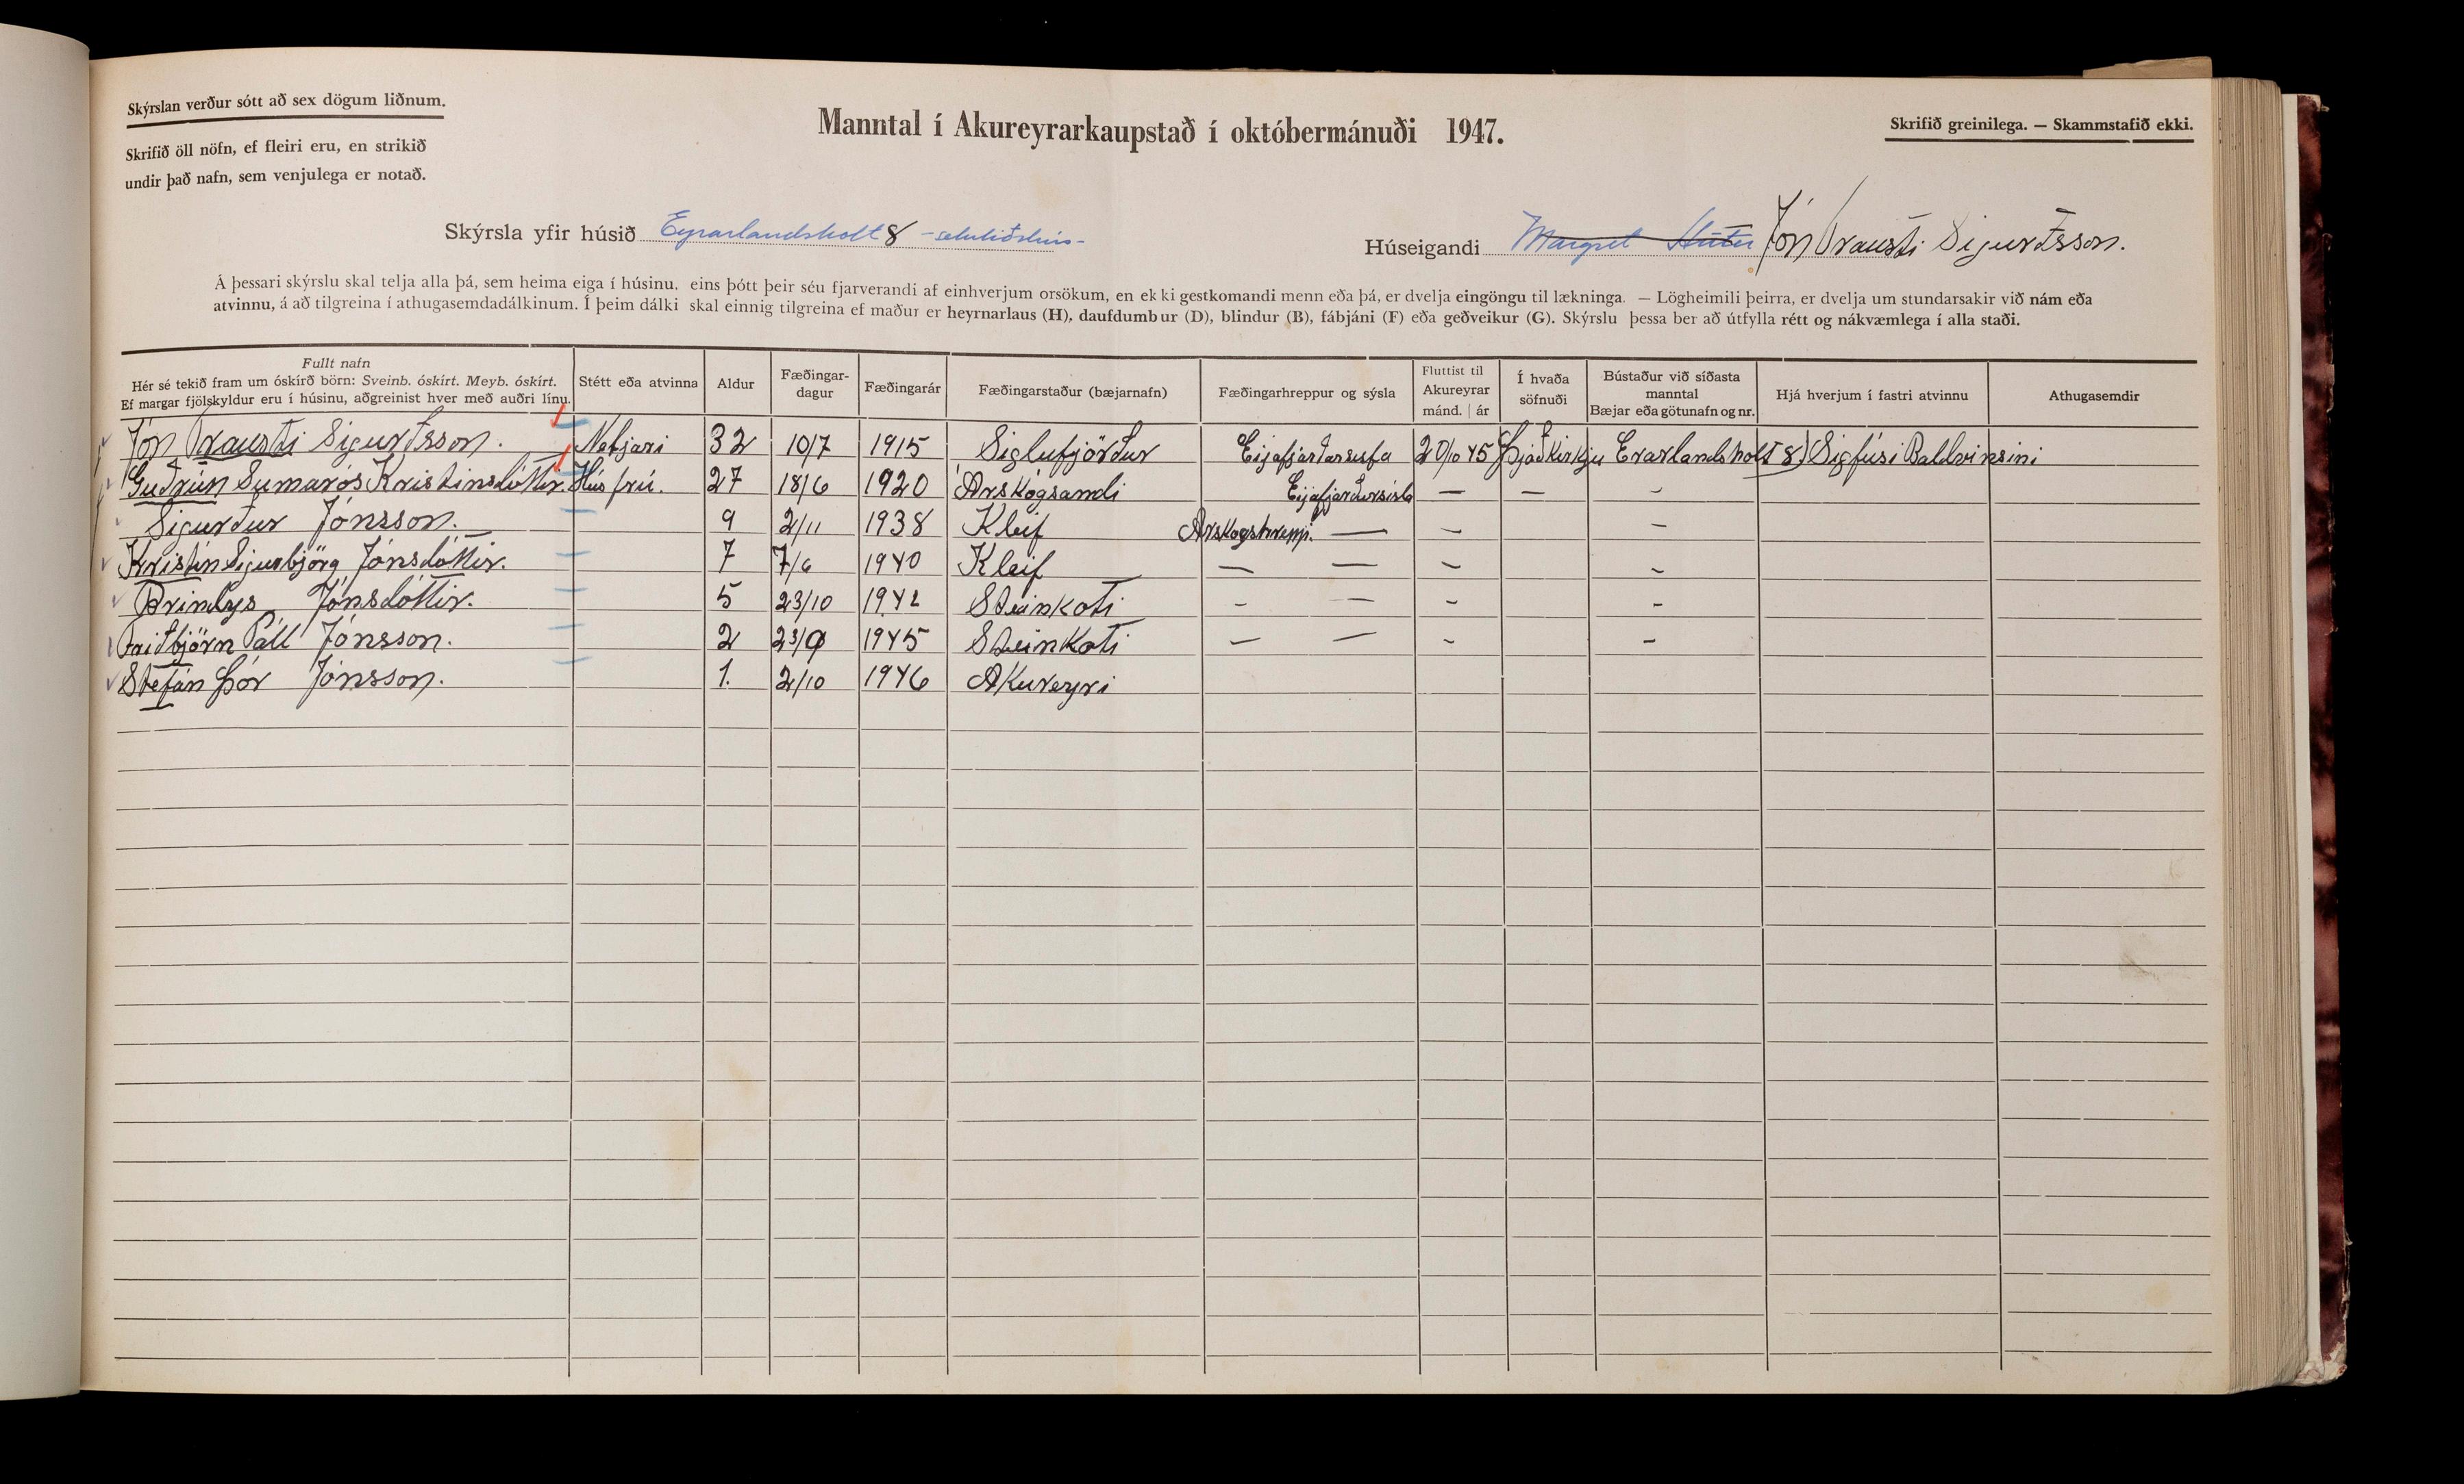 Skýrslan verður sótt að sex dögum liðnum.
Skrifið öll nöfn, ef fleiri eru, en strikið
undir það nafn, sem venjulega er notað.
Manntal í Akureyrarkaupstað í októbermánuði 1947.
Skrifið greinilega. — Skammstafið ekki.
Skýrsla yfir húsið Eyrarlandsholt 8 - setuliðshús -
Húseigandi Margret Jón Trausti Sigurðsson.
Á þessari skýrslu skal telja alla þá, sem heima eiga í húsinu, eins þótt þeir séu fjarverandi af einhverjum orsökum, en ekki gestkomandi menn eða þá, er dvelja eingöngu til lækninga. — Lögheimili þeirra, er dvelja um stundarsakir við nám eða
atvinnu, á að tilgreina í athugasemdadálkinum. Í þeim dálki skal einnig tilgreina ef maður er heyrnarlaus (H), daufdumbur (D), blindur (B), fábjáni (F) eða geðveikur (G). Skýrslu þessa ber að útfylla rétt og nákvæmlega í alla staði.
Fullt nafn
Hér sé tekið fram um óskírð börn: Sveinb. óskírt. Meyb. óskírt.
Ef margar fjölskyldur eru í húsinu, aðgreinist hver með auðri línu.
Stétt eða atvinna
Aldur
Fæðingar-
dagur
Fæðingarár
Fæðingarstaður (bæjarnafn)
Fæðingarhreppur og sýsla
Fluttist til
Akureyrar
mánd. | ár
Í hvaða
söfnuði
Bústaður við síðasta
manntal
Bæjar eða götunafn og nr.
Hjá hverjum í fastri atvinnu
Athugasemdir
Jón Trausti Sigurðsson. Netjari 32 10/7 1915 Siglufjörður Eijafjarðarsusfa 20/10 45 Þjóðkirkju Erarlandsholt 8) Sigfúsi Baldvinsini
Guðrún Sumarós Kristinsdóttir. Húsfrú. 27 18/6 1920 Árskógsandi Eijafjarðursísla — — -
Sigurður Jónsson. 9 2/11 1938 Kleif Arskogshreppi. — — —
Kristín Sigurbjörg Jónsdóttir. 7 7/6 1940 Kleif — — - -
Brindys Jónsdóttir. 5 23/10 1942 Steinkoti - — - -
Friðbjörn Páll Jónsson. 2 23/9 1945 Steinkoti — — - -
Stefán Þór Jónsson. 1. 2/10 1946 Akureyri